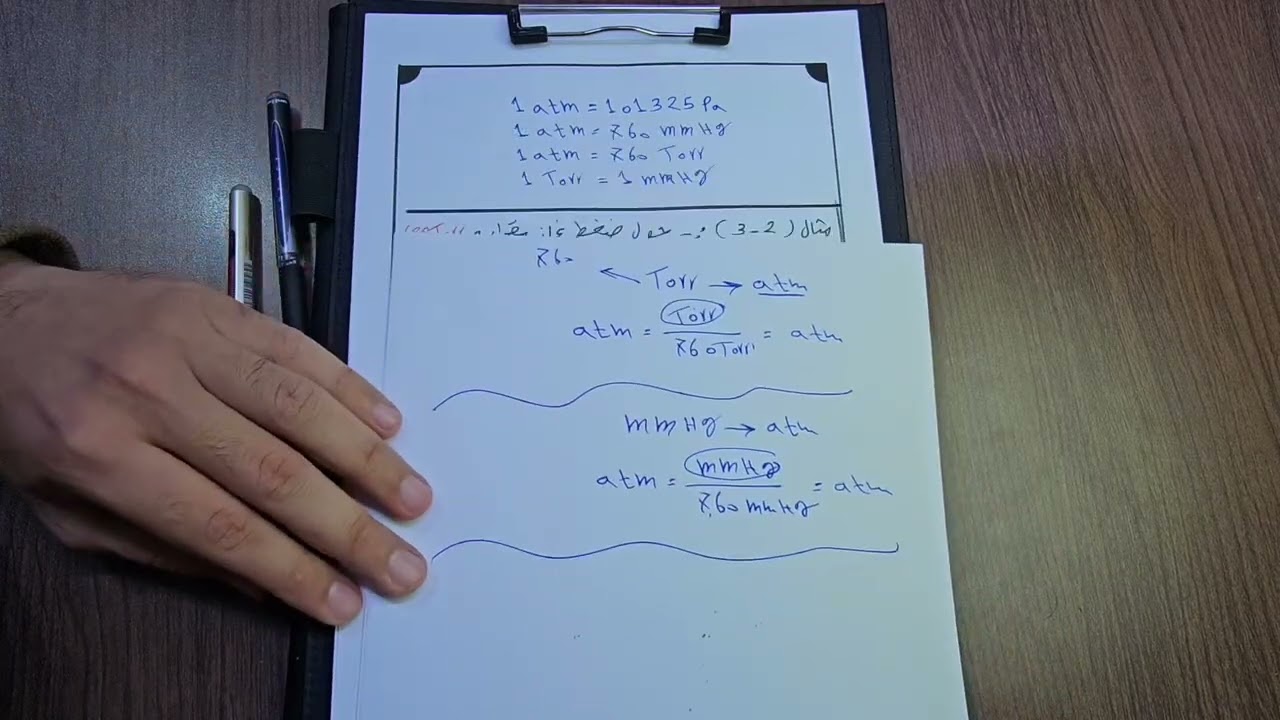 1 atm = 101325 Pa
1 atm = 760 mmHg
1 atm = 760 Torr
1 Torr = 1 mmHg
مثال (2-3) : حول ضغط غاز مقداره
760
Torr → atm
atm = Torr / 760 Torr = atm
mmHg → atm
atm = mmHg / 760 mmHg = atm